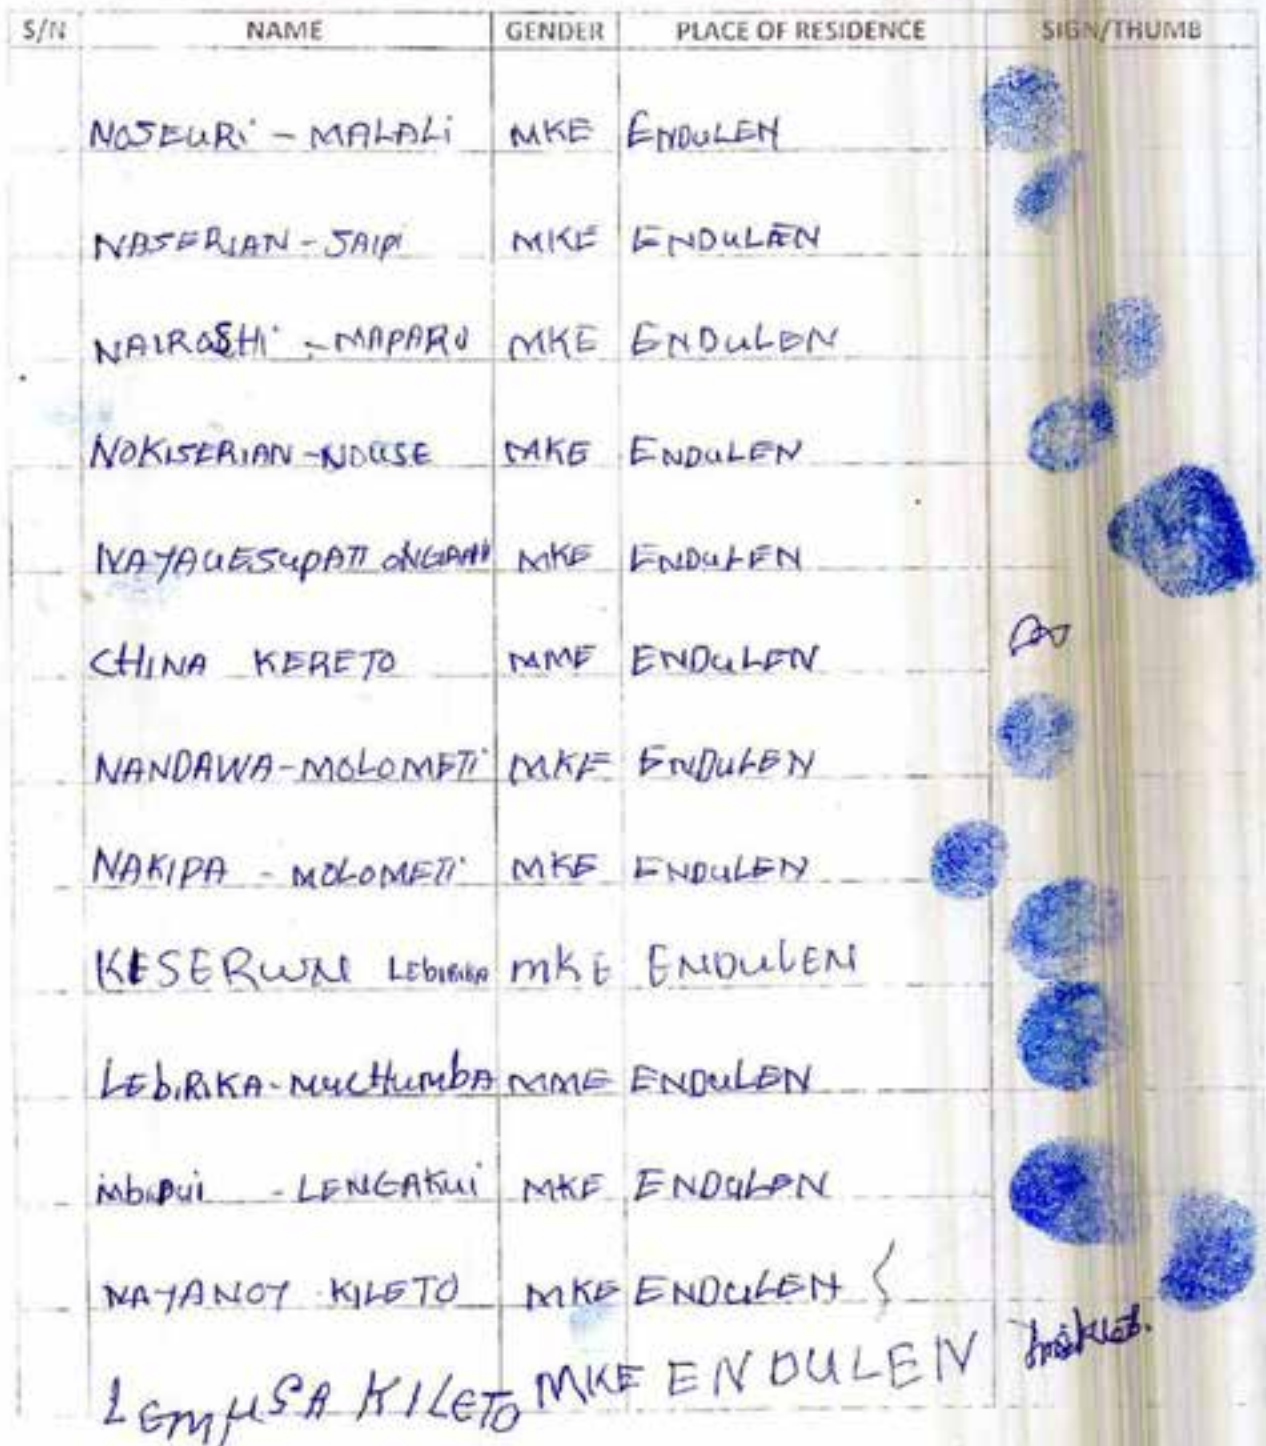 S/N NAME GENDER PLACE OF RESIDENCE SIGN/THUMB
NOSEURI - MALALI MKE ENDULEN
NASERIAN - SAIPI MKE ENDULEN
NAIROSHI - MAPARO MKE ENDULEN
NOKISERIAN - NDUSE MKE ENDULEN
MKE ENDULEN
CHINA KERETO MME ENDULEN
NANDAWA - MOLOMETI MKE ENDULEN
NAKIPA - MOLOMETI MKE ENDULEN
KESERWN LEBIRIKA MKE ENDULEN
LEbIRIKA - MUCHUMbA MME ENDULEN
- LENGAKUI MKE ENDULEN
NAYANOY KILETO MKE ENDULEN
LEMUSA KILETO MKE ENDULEN